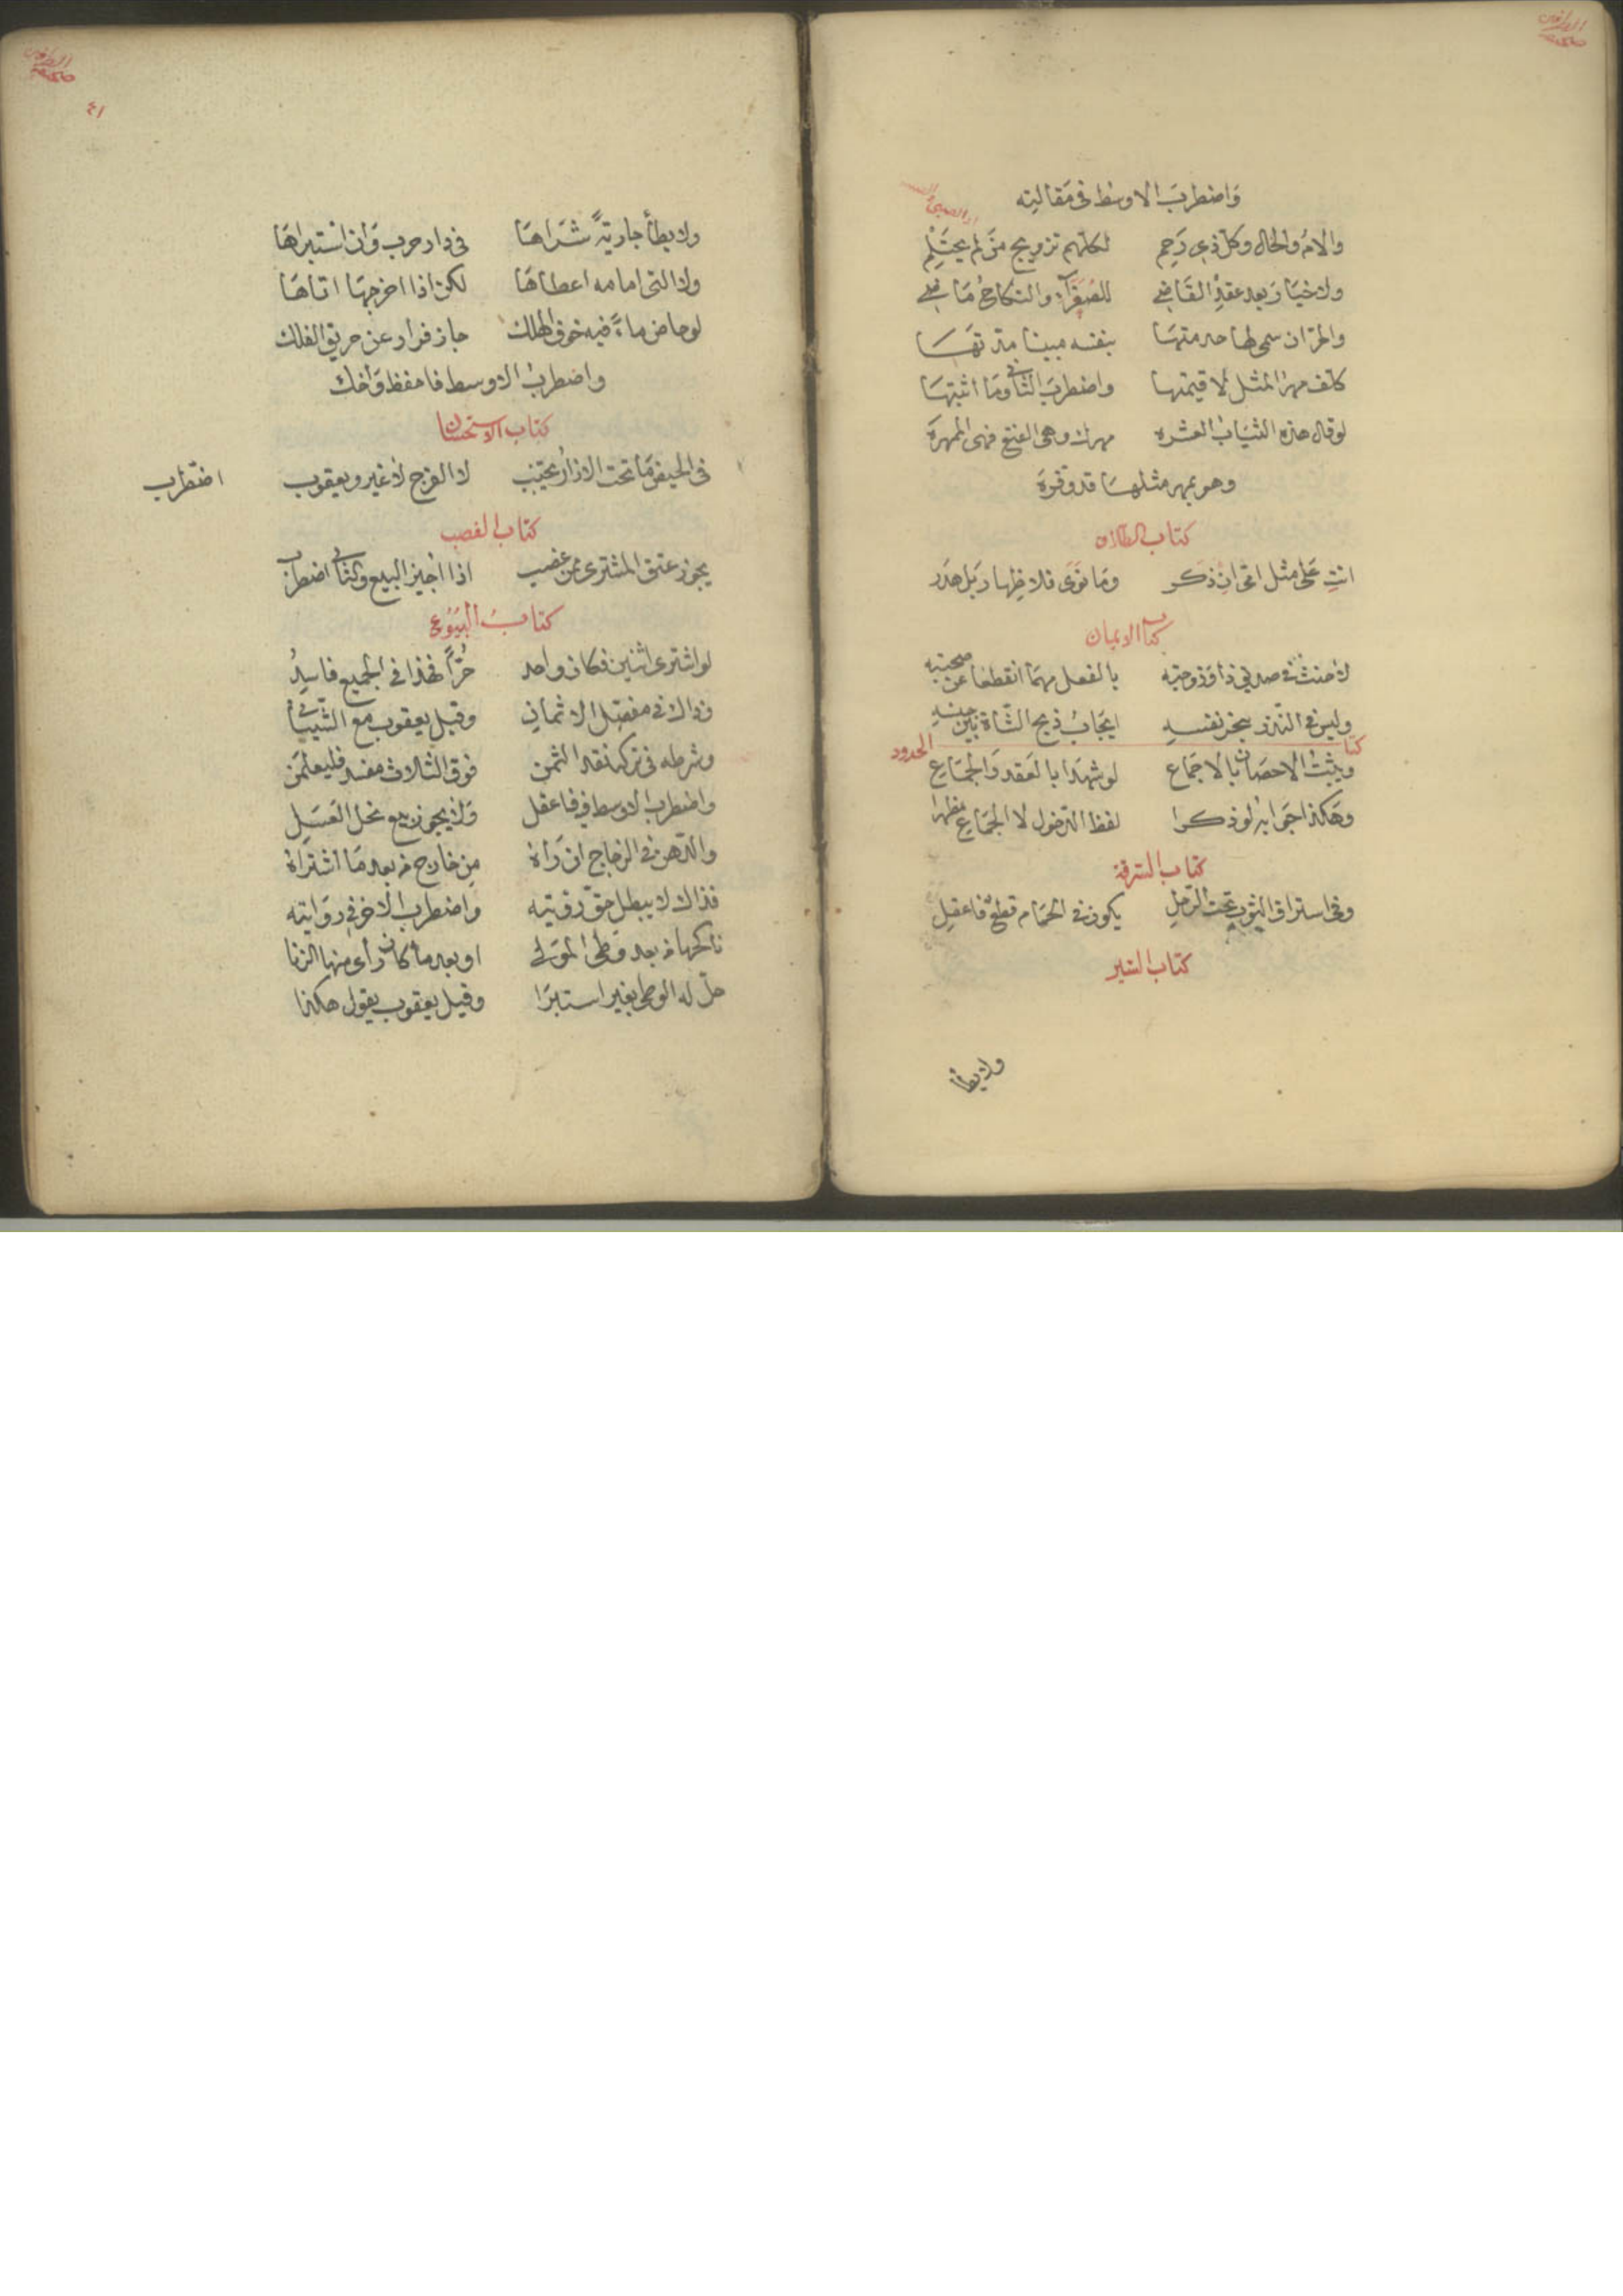 وَاضطربَ الاوسط فى مَقالته
والامُّ والخال وكلّ ذى رَحِم لكلّهم تزويج مَن لم يحتلِم
ولاخيَار بعد عقدِ القَاضى للصُغَرآء والنكاحُ مَاضى
والحرّ ان سمى لها خدمتها بنفسه مبينا مدّتهَا
كلّف مهر المثل لا قيمتها واضطربَ الثانى ومَا اثبتهَا
لوقال هذه الثيَاب العشره مهرك وهى التسع فهى الممهرَة
وهو بمهر مثلهَا قد وفّرَة
كتاب الطلاق
انتِ عَلى مثل امّى ان ذكر ومَا نَوَى فلا ظِهار بَل هَدر
كتاب الايمان
لاحنث فى صديق ذا وزوجته بالفعل مهمَا انقطعا عن صحبته
وليس فى النذر بنحر نفسهِ ايجَابُ ذبح الشاة بَين جنسهِ
كتاب الحدود
ويثبت الاحصَان بالاجمَاع لو شهدَا بالعَقد وَالجمَاع
وهَكذا جَوابه لو ذكرا لفظ الدّخول لا الجمَاع مظهرا
كتاب السّرقة
وفى استراق الثوب تحت الرّجلِ يكون فى الحمّام قطعٌ فاعقِلِ
كتاب السّير
ولايطأ
٤١
ولايطأ جاريةً شَرَاهَا فى دار حرب وَان استبراهَا
ولا التى امامه اعطاهَا لكن اذا اخرجهَا اتاهَا
لو خاض ماءً فيه خوف الهلك جاز فرار عن حريق الفلك
واضطربَ الاوسط فاحفظ وَاخك
كتاب الاستحسان
فى الحيض مَا تحت الازار يجتنب لا الفرج لا غير ويعقوب اضطرب
كتاب الغصب
يجوز عتق المشترى ممن غصب اذا اجيز البيع والثانى اضطرب
كتابُ البُيُوع
لو اشترى اثنين فكان واحد حُرّاً فهذا فى الجميع فاسِدُ
وذاك فى مفصّل الاثمانِ وقيل يعقوب مع الشيبانى
وشرطه فى تركه نقد الثمن فوق الثلاث مفسد فليعلمَن
واضطربَ الاوسط فى فاعقل وَلا يجوز بيع نحل العَسَلِ
والدّهن فى الزجاج ان رَاهُ مِن خارج من بعد مَا اشتراهُ
فذاك لا يبطل حقّ رؤيته واضطربَ الاخر فى روَايته
ناكحها من بعد وَطى المَولى او بعد ما كان راى منها الزنا
حلّ له الوطى بغير استبرَا وقيل يعقوب يقول هكذا